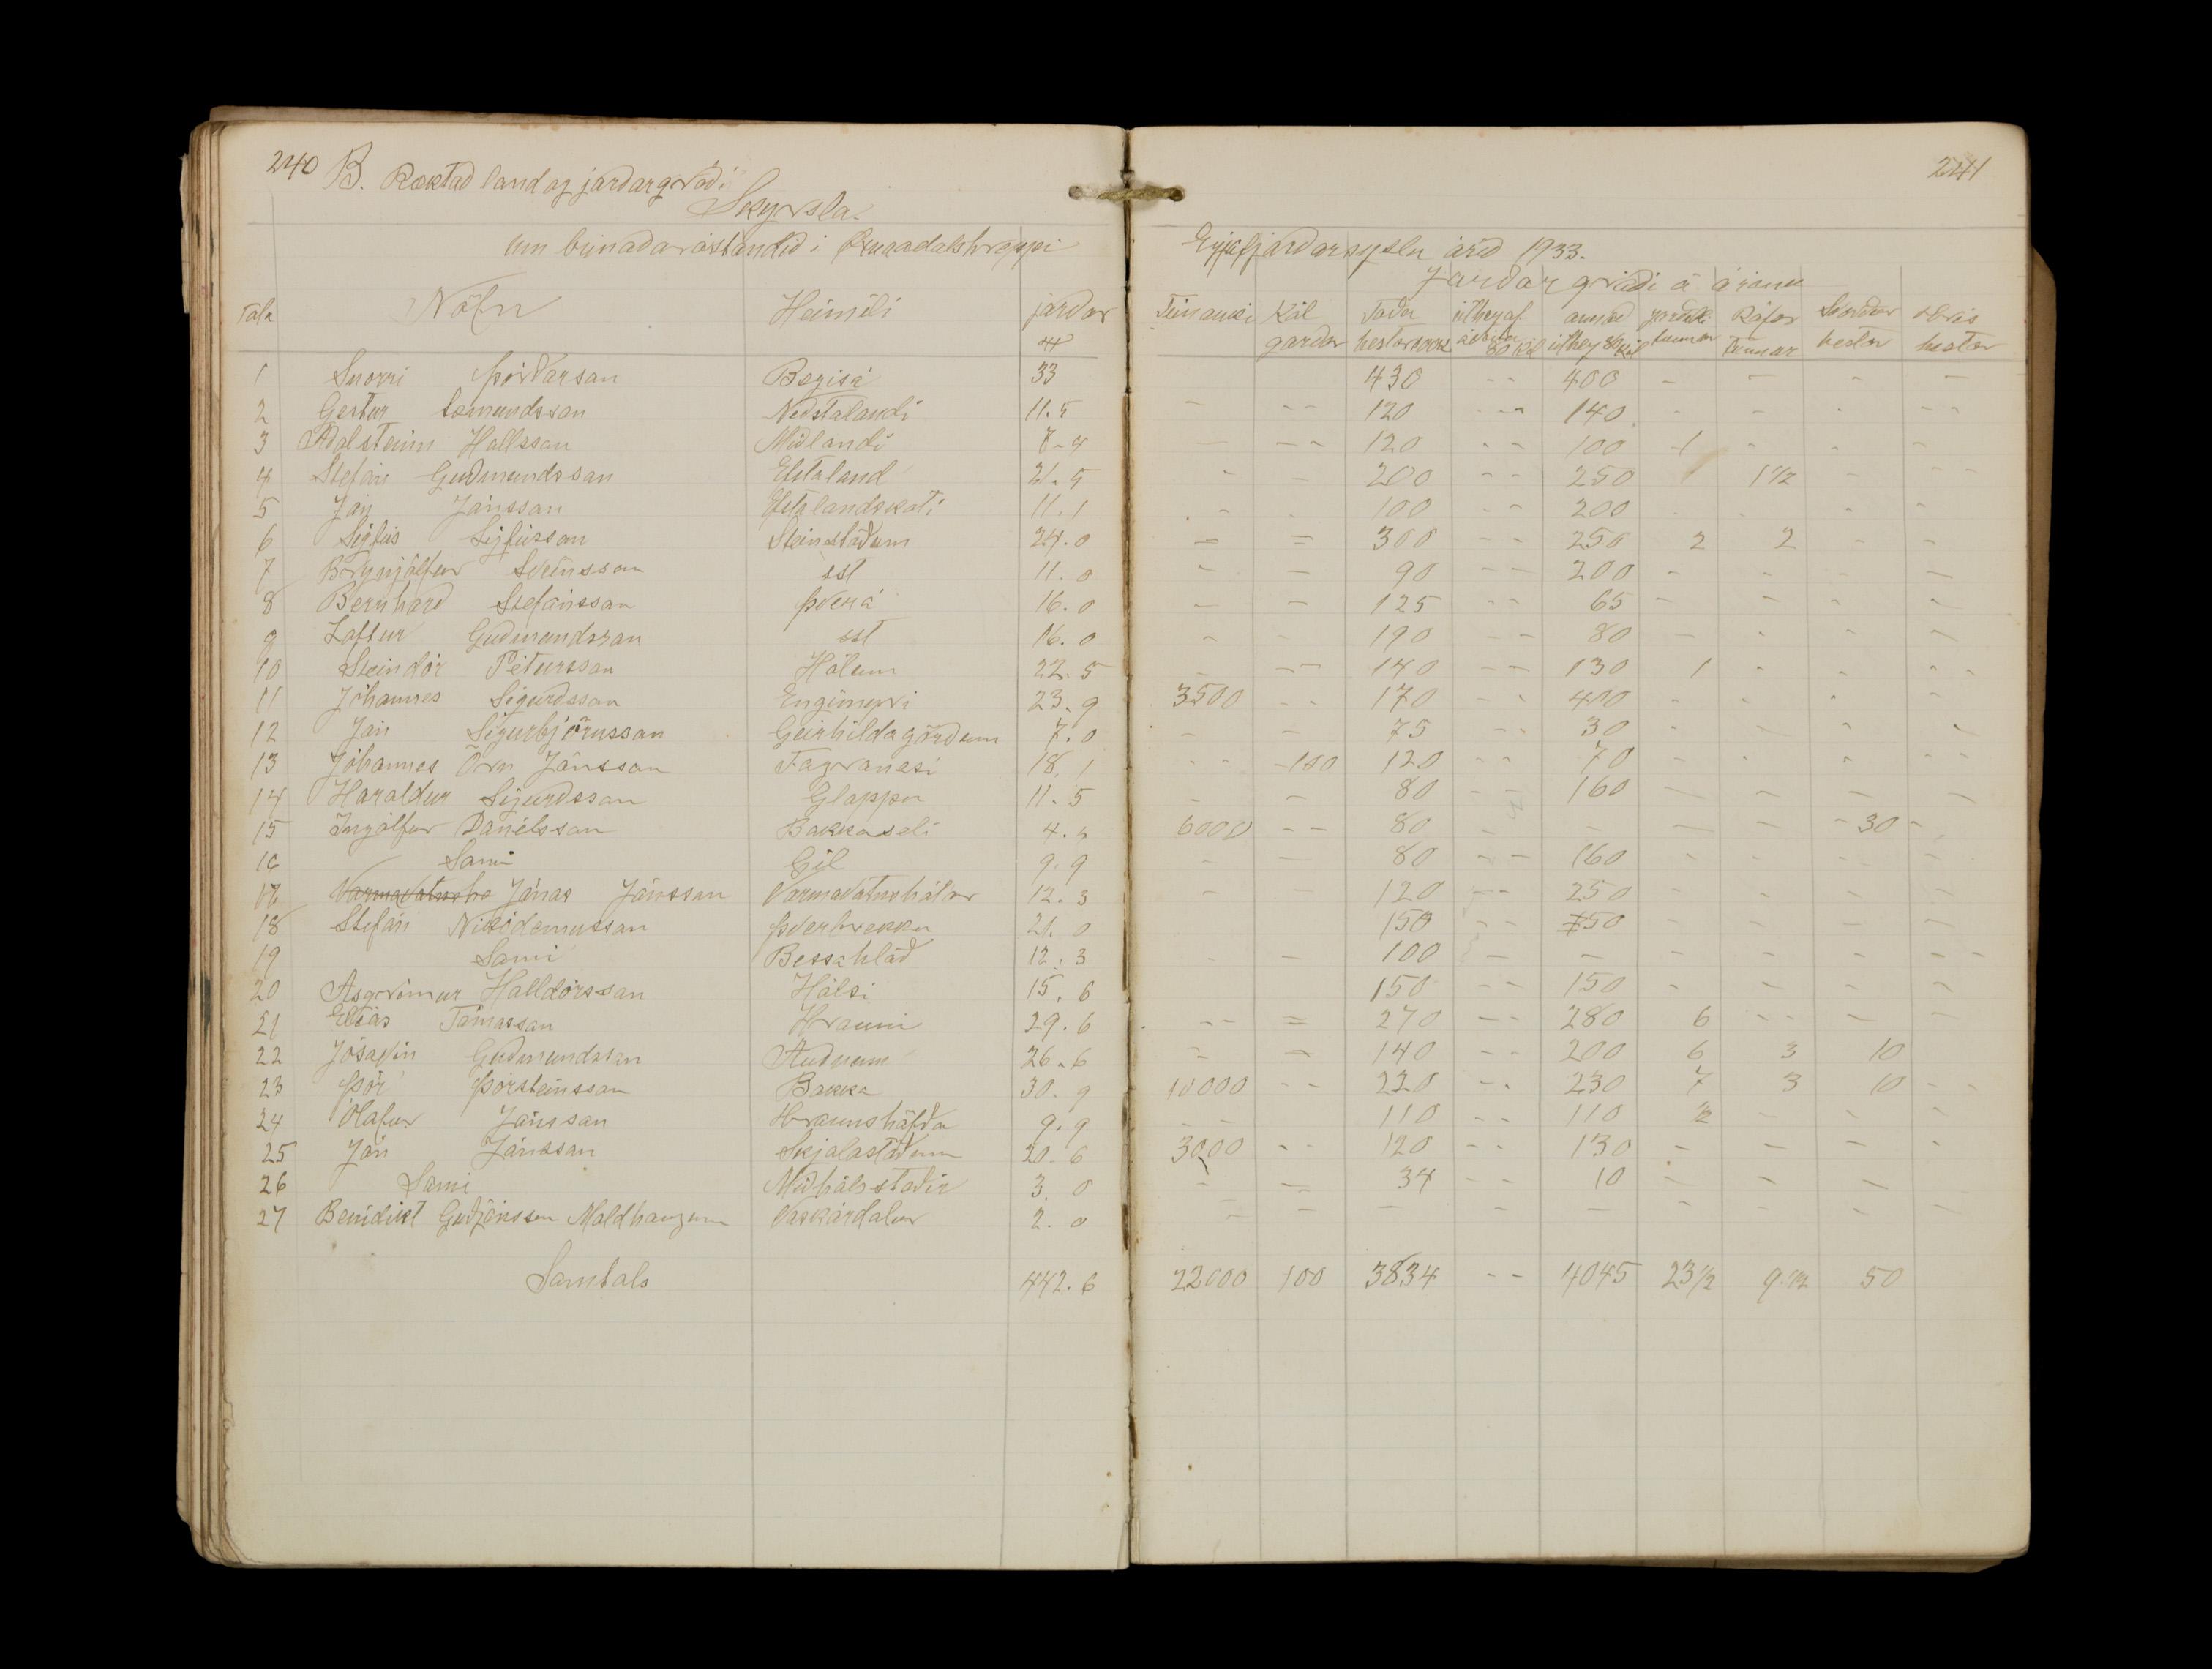 240 B. Ræktað land og jarðargróði 241
Skyrsla
um búnaðarástandið i Öxnadalshreppi Eyjafjarðarsyslu árið 1933.
Jarðar gróði á árinu
Tala Nöfn Heimili jarðar Túnauki Kál Taða úthey af annað jarðepli Rófur Svörður Hrís
# garðar hestar 100 K 80 Kil úthey 80 Kil tunnur Tunnur hestar hestar
1 Snorri Þórðarson Bægisá 33 430 -- 400 - - - -
2 Gestur Sæmundsson Neðstalandi 11.5 - -- 120 -- 140 - - - --
3 Aðalsteinn Hallsson Miðlandi 7-4 - -- 120 -- 100 1 - - -
4 Stefán Guðmundsson Efstaland 21.5 - - 200 -- 250 1 1 1/2 - --
5 Jón Jónsson Efstalandskoti 11.1 -- - 100 -- 200 - - - -
6 Sigfús Sigfússon Steinstöðum 24.0 = = 300 -- 250 2 2 - -
7 Brynjólfur Sveinsson sst 11.0 - - 90 -- 200 - - - -
8 Bernharð Stefánsson Þverá 16.0 - - 125 -- 65 - - - -
9 Loftur Guðmundsson sst 16.0 - - 190 -- 80 - - - -
10 Steindór Pétursson Hólum 22.5 - -- 140 -- 130 1 - - --
11 Jóhannes Sigurðsson Engimyri 23.9 3500 -- 170 -- 400 - - - --
12 Jón Sigurbjörnsson Geirhildagörðum 7.0 - - 75 -- 30 - - - -
13 Jóhannes Örn Jónsson Fagranesi 18.1 -- -100 120 -- 70 - - - --
14 Haraldur Sigurdsson Glæppu 11.5 - - 80 -- 160 - - - -
15 Ingólfur Daníelsson Bakkaseli 4.4 6000 -- 80 - - - - -30 -
16 Sami Gil 9.9 - - 80 -- 160 - - - -
17 Jónas Jónsson Varmavatnshólar 12.3 - - 120 -- 250 - - - -
18 Stefán Nikódemusson Þverbrekku 21.0 150 -- 150 - - - -
19 Sami Bessahlað 12.3 - - 100 - - - - - --
20 Asgrimur Halldórsson Hálsi 15.6 150 -- 150 - - - -
21 Elías Tómasson Hrauni 29.6 -- = 270 -- 280 6 -- - -
22 Jósavin Guðmundsson Auðnum 26.6 - - 140 -- 200 6 3 10
23 Þór Þorsteinsson Bakka 30.9 10000 -- 220 -- 230 7 3 10 --
24 Olafur Jónsson Hraunshöfða 9.9 -- 110 -- 110 1/2 - - -
25 Jón Jónsson Skjalastöðum 20.6 3000 -- 120 -- 130 - - - -
26 Sami Miðhálsstaðir 3.0 - - 34 -- 10 - - -
27 Benidikt Guðjónsson Moldhaugum Vaskárdalur 2.0 - - - - - - - - -
Samtals 442.6 22000 100 3834 -- 4045 23 1/2 9 1/2 50